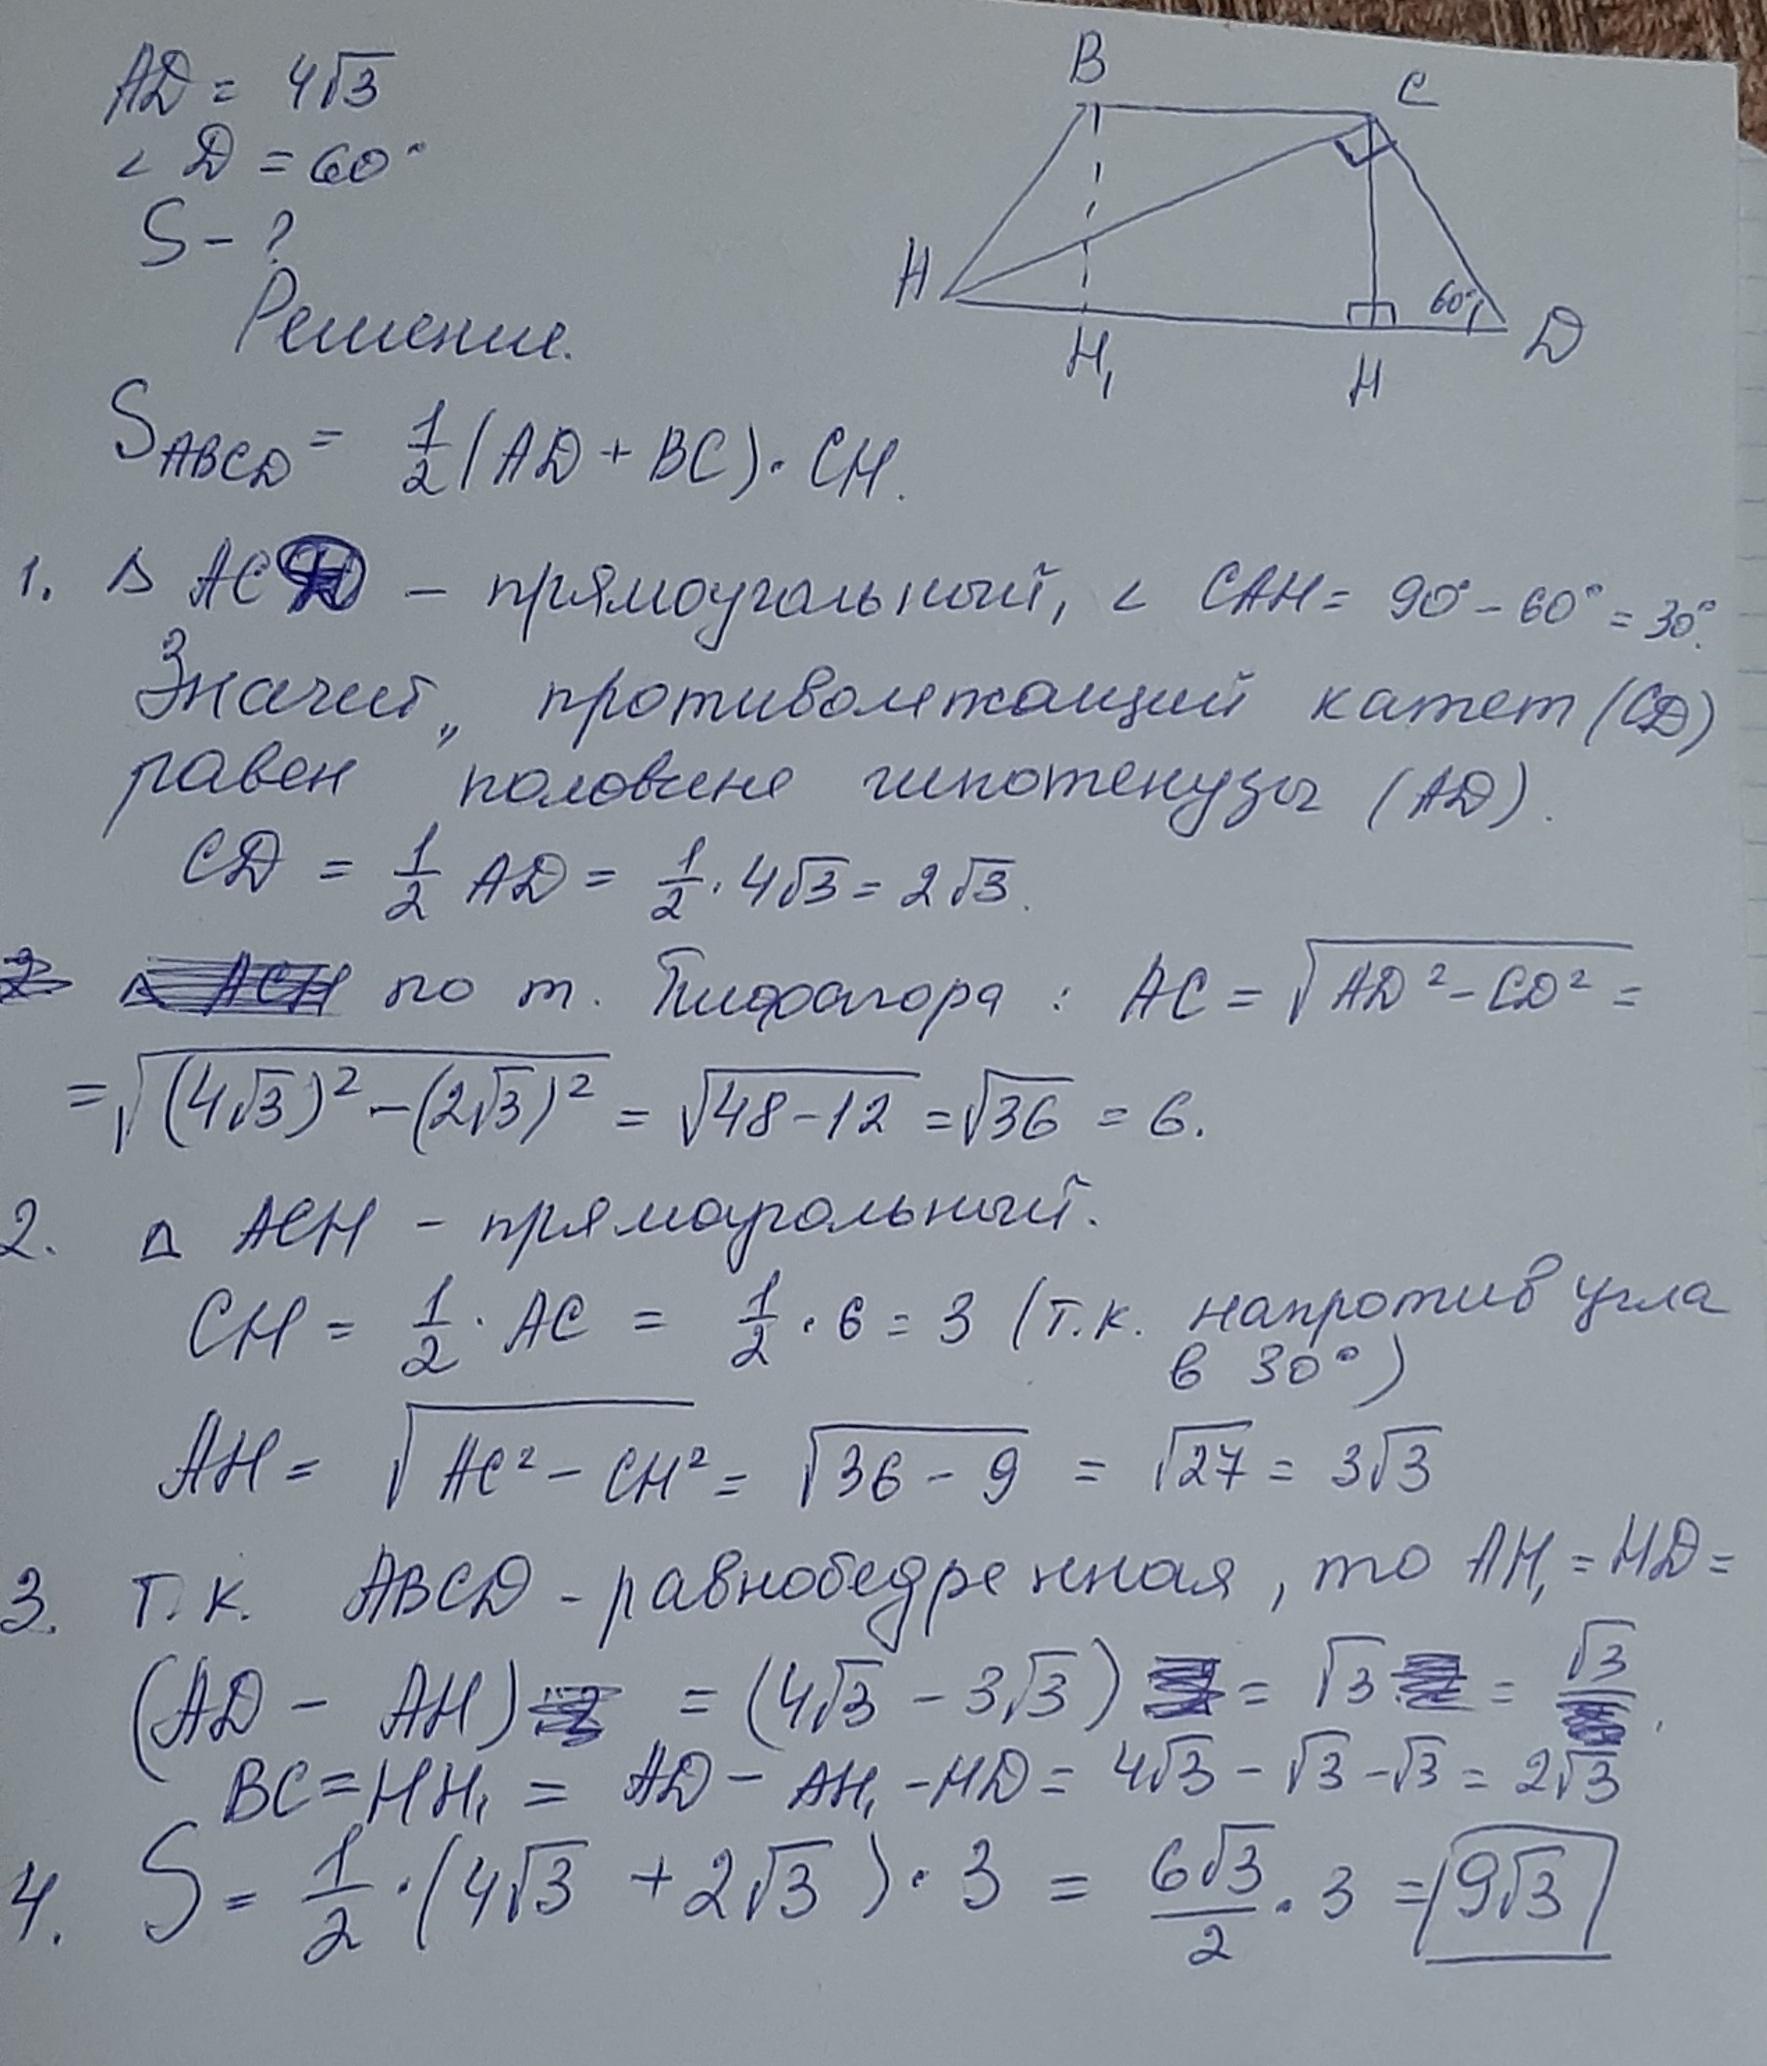 AD = 4√3
∠ D = 60°
S - ?
Решение.
B
C
A
60°
D
H₁
H
S_ABCD = 1/2 (AD + BC) · CH.
1. △ ACD – прямоугольный, ∠ CAH = 90° – 60° = 30°.
Значит, противолежащий катет (CD)
равен половине гипотенузы (AD).
CD = 1/2 AD = 1/2 · 4√3 = 2√3.
по т. Пифагора : AC = √(AD² – CD²) =
= √((4√3)² – (2√3)²) = √(48 – 12) = √36 = 6.
2. △ ACH – прямоугольный.
CH = 1/2 · AC = 1/2 · 6 = 3 (т.к. напротив угла
в 30°)
AH = √(AC² – CH²) = √(36 – 9) = √27 = 3√3
3. т.к. ABCD – равнобедренная, то AH₁ = HD =
(AD – AH) = (4√3 – 3√3) = √3 = √3.
BC = HH₁ = AD – AH₁ – HD = 4√3 – √3 – √3 = 2√3
4. S = 1/2 · (4√3 + 2√3) · 3 = 6√3/2 · 3 = 9√3